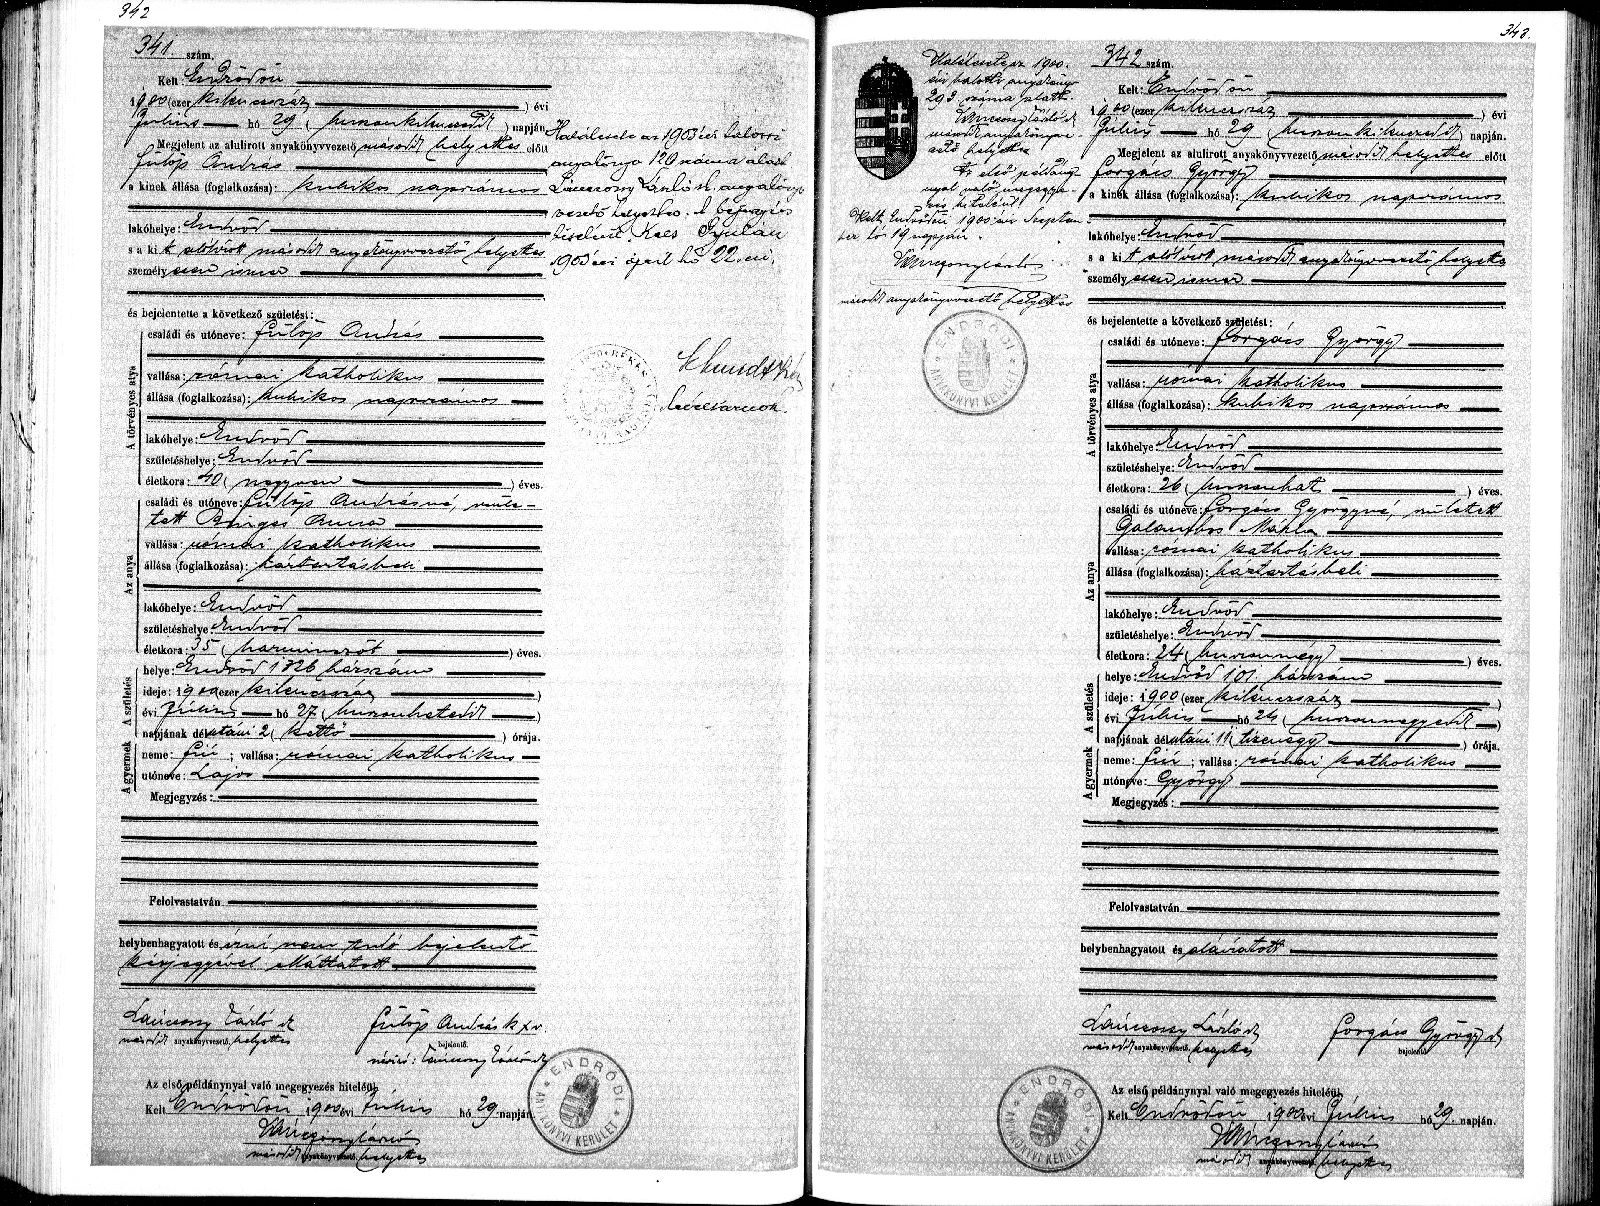 342
341. szám.
Kelt Endrődön
1900 (ezer kilencszáz ) évi
Július hó 29 ( huszonkilencedik ) napján
Megjelent az alulirott anyakönyvvezető második helyettes előtt
Fülöp András
a kinek állása (foglalkozása): kubikos napszámos
lakóhelye: Endrőd
s a kit alólirott második anyakönyvvezető helyettes
személyesen ismer
és bejelentette a következő születést:
A törvényes atya
családi és utóneve: Fülöp András
vallása: római katholikus
állása (foglalkozása): kubikos napszámos
lakóhelye: Endrőd
születéshelye: Endrőd
életkora: 40 ( negyven ) éves.
Az anya
családi és utóneve: Fülöp Andrásné, szüle-
tett Anna
vallása: római katholikus
állása (foglalkozása): háztartásbeli
lakóhelye: Endrőd
születéshelye: Endrőd
életkora: 35 ( harminczöt ) éves.
A születés
helye: Endrőd 1826 házszám
ideje: 1900 (ezer kilencszáz )
évi Július hó 27 ( huszonhetedik )
napjának délutáni 2 ( kettő ) órája.
A gyermek
neme: fiú ; vallása: római katholikus
utóneve: Lajos
Megjegyzés:
Felolvastatván
helybenhagyatott és irni nem tudó bejelentő
kézjegyével elláttatott
Láncsony László sk
második anyakönyvvezető helyettes
Fülöp András k x v.
bejelentő.
névíró: Láncsony László sk
Az első példánynyal való megegyezés hiteléül
Kelt Endrődön 1900 évi Július hó 29 napján
Láncsony László
második anyakönyvvezető helyettes
ENDRŐDI ANYAKÖNYVI KERÜLET
Halálesete az 1903 évi halotti
anyakönyv 120 száma alatt
Láncsony László sk. anyakönyv-
vezető helyettes. A bejegyzés
hiteléül. Kelt Gyulán
1903 évi április hó 22-én.
levéltárnok.
343.
Haláleset az 1900.
évi halotti anyakönyv
293 száma alatt.
Láncsony László sk
második anyakönyvve-
zető helyettes
Az első példány-
nyal való megegye-
zés hiteléül
Kelt, Endrődön 1900 évi Szeptem-
ber hó 19 napján.
Láncsony László
második anyakönyvvezető helyettes
ENDRŐDI ANYAKÖNYVI KERÜLET
342 szám.
Kelt: Endrődön
1900 (ezer kilencszáz ) évi
Július hó 29 ( huszonkilencedik ) napján.
Megjelent az alulirott anyakönyvvezető második helyettes előtt
Forgács György
a kinek állása (foglalkozása): kubikos napszámos
lakóhelye: Endrőd
s a kit alólirott második anyakönyvvezető helyettes
személyesen ismer
és bejelentette a következő születést:
A törvényes atya
családi és utóneve: Forgács György
vallása: római katholikus
állása (foglalkozása): kubikos napszámos
lakóhelye: Endrőd
születéshelye: Endrőd
életkora: 26 ( huszonhat ) éves.
Az anya
családi és utóneve: Forgács Györgyné, született
Galambos
vallása: római katholikus
állása (foglalkozása): háztartásbeli
lakóhelye: Endrőd
születéshelye: Endrőd
életkora: 24 ( huszonnégy ) éves.
A születés
helye: Endrőd 101. házszám
ideje: 1900 (ezer kilencszáz )
évi Július hó 24 ( huszonnegyedik )
napjának délutáni 11 ( tizenegy ) órája.
A gyermek
neme: fiú ; vallása: római katholikus
utóneve: György
Megjegyzés:
Felolvastatván
helybenhagyatott és aláiratott
Láncsony László sk
második anyakönyvvezető helyettes
Forgács György sk
bejelentő
Az első példánynyal való megegyezés hiteléül
Kelt Endrődön 1900 évi Július hó 29. napján.
Láncsony László
második anyakönyvvezető helyettes
ENDRŐDI ANYAKÖNYVI KERÜLET